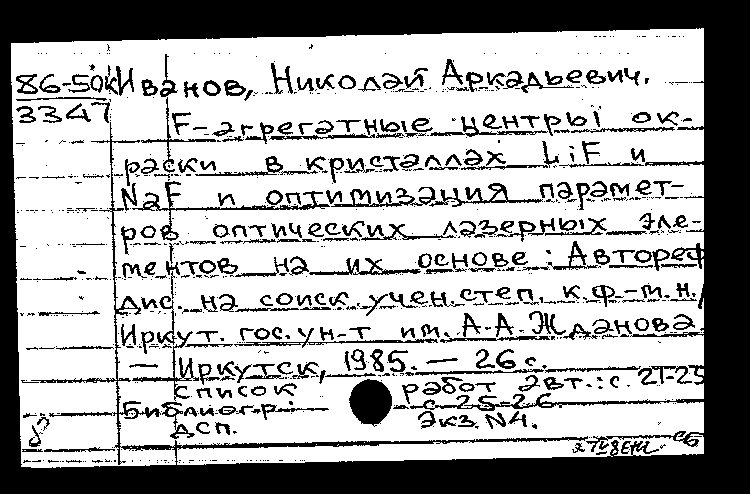 86-5ок Иванов, Николай Аркадьевич.
3347
F-агрегатные центры ок-
раски в кристаллах LiF и
NaF и оптимизация парамет-
ров оптических лазерных эле-
ментов на их основе: Автореф
дис. на соиск. учен. степ. к.ф.-м.н./
Иркут. гос. ун-т им. А.А. Жданова.
— Иркутск, 1985. — 26 с.
список работ авт.: с. 21-25
Библиогр.: с. 25-26.
ДСП. Экз. N4.